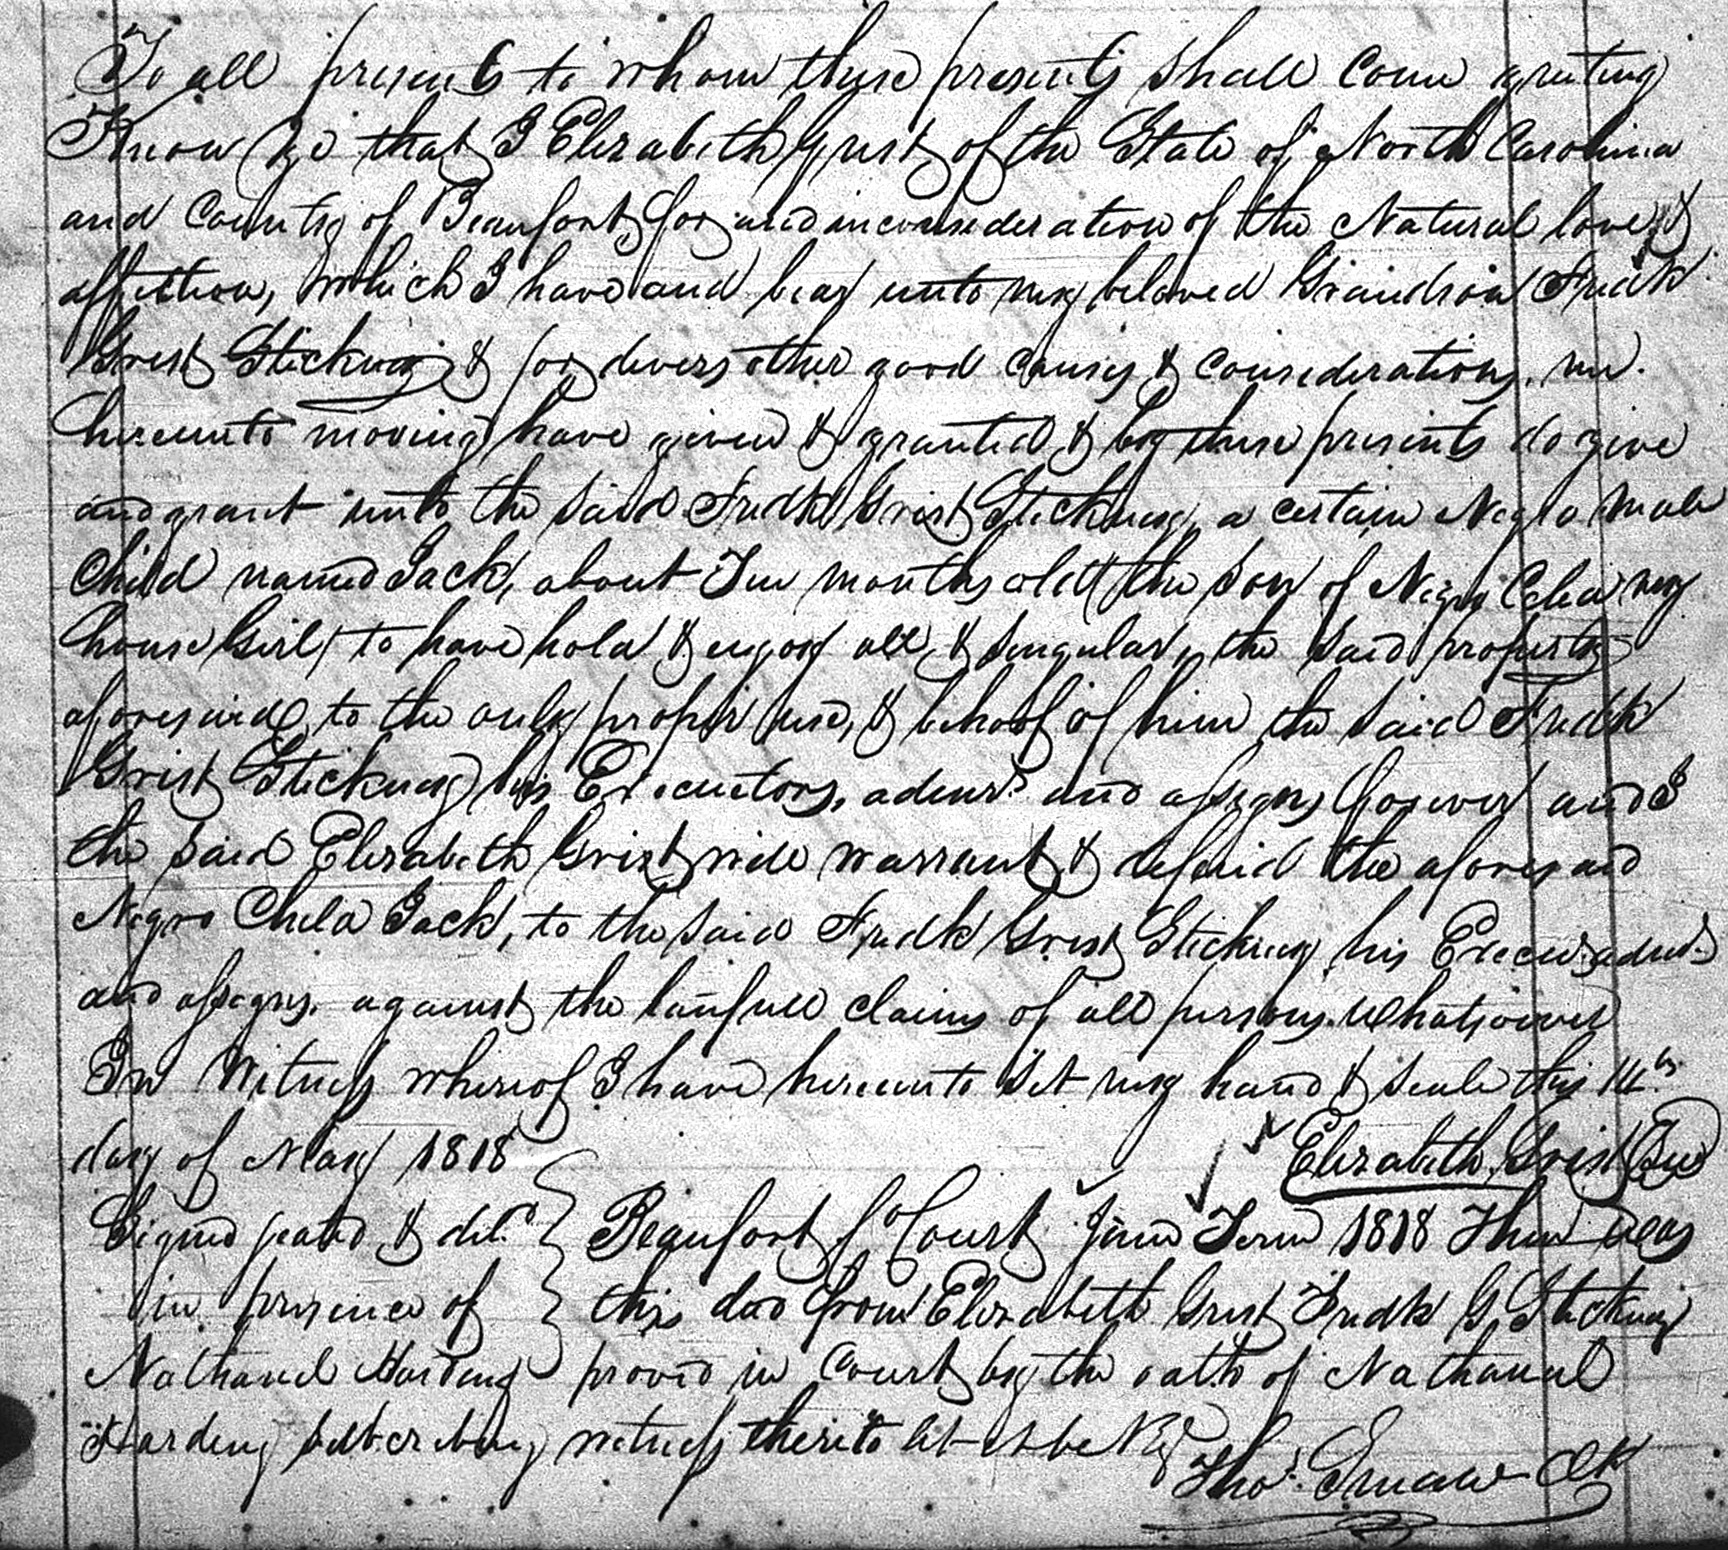 To all presents to whom these presents shall come greeting
Know ye that I Elizabeth Grist of the State of North Carolina
and County of Beaufort for and in consideration of the Natural love &
affection, which I have and bear unto my beloved Grandson Fredk
Grist Stickney & for divers other good causes & considerations, me
hereunto moving have given & granted & by these presents do give
and grant unto the said Fredk Grist Stickney, a certain Negro male
Child named Jack, about Ten months old (the son of Negro Celia my
house Girl) to have hold & enjoy all & singular, the said property
aforesaid, to the only proper use, & behoof of him the said Fredk
Grist Stickney his Executors, admrs and assigns forever and I
the said Elizabeth Grist will warrant & defend the aforesaid
Negro Child Jack, to the said Fredk Grist Stickney his Execurs admrs
and assigns, against the lawfull claims of all persons whatsoever
In Witness whereof I have hereunto set my hand & seale this 14th
day of May 1818 Elizabeth Grist (Seal)
Signed seated & deld } Beaufort Co Court June Term 1818 Then was
in presence of } this deed from Elizabeth Grist Fredk G. Stickney
Nathanel Harding } proved in Court by the oath of Nathanael
Harding subscribing witness thereto let it be Reg
Thos. Smaw Clk